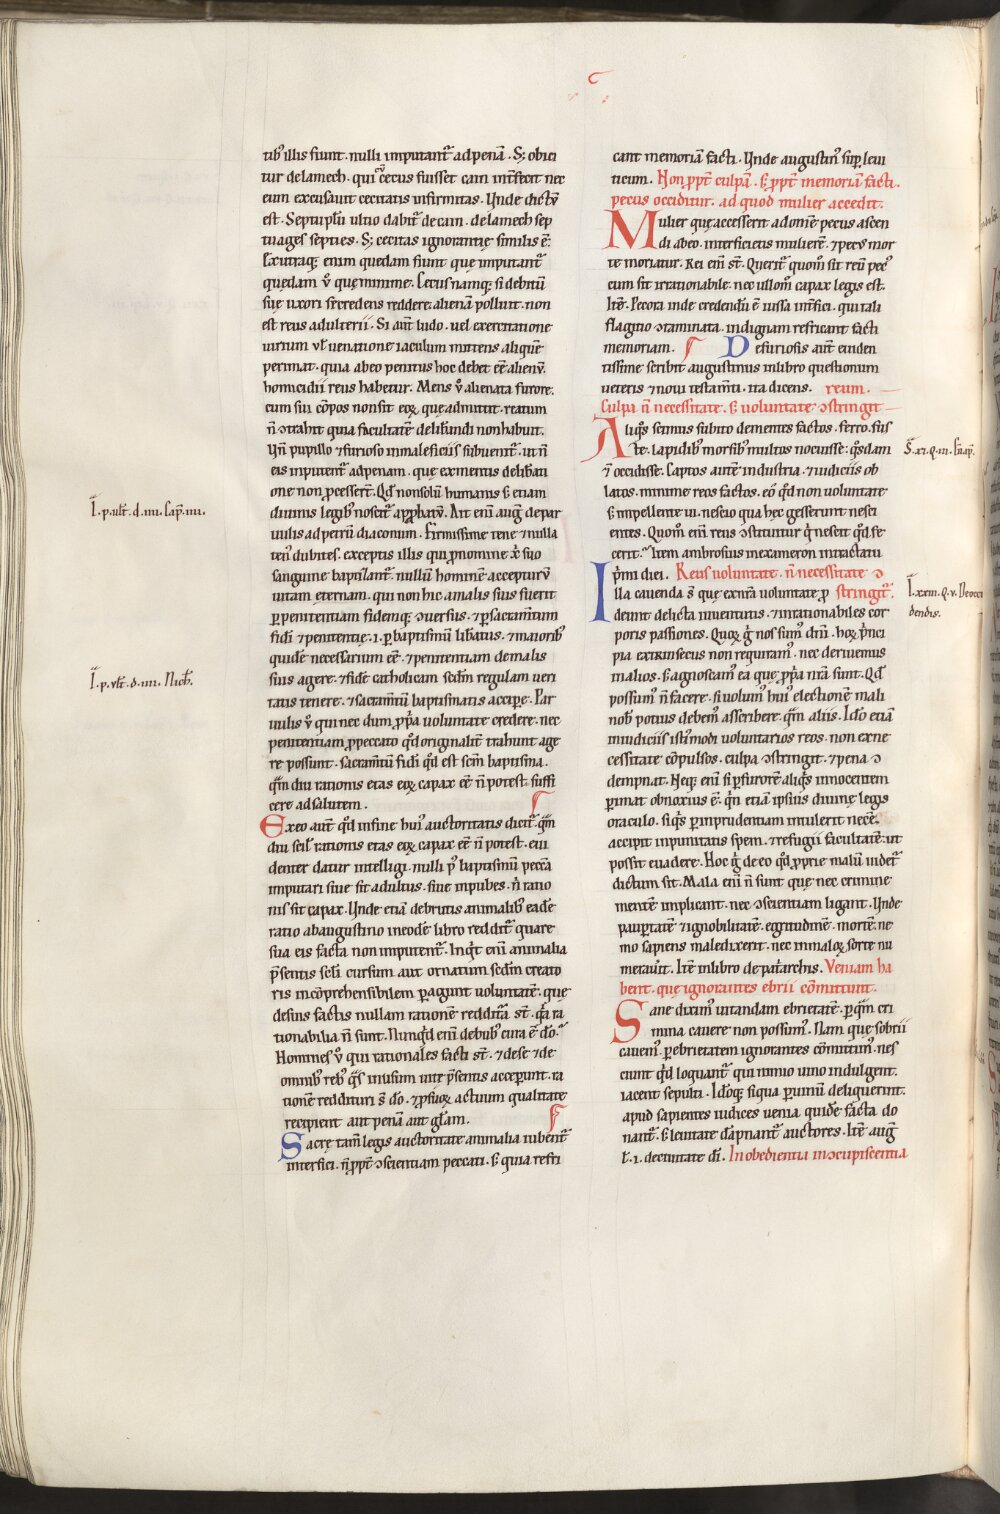 tib᷒ illis fiunt. nulli imputant᷑ ad penā. S; obici
tur delamech. qui cęcus fuisset cain int̄fecit nec
eum excusauit cecitatis infirmitas. Unde dictū
est. Septuplū ultio dabit᷑ de cain. de lamech sep
tuages septies. S; cecitas ignorantię similis ē.
Ex utraq; enim quedam fiunt quę imputant᷑
quędam ū quę minime. Cecus namq; si debitū
suę uxori se credens reddere. alienā polluit. non
est reus adulterii. Si aut̄ ludo. uel exercitatione
uirium ul̄ uenatione iaculum mittens aliquē
perimat. quia abeo penitus hoc debet eē alienū.
homicidii reus habetur. Mens ū alienata furore.
cum sui cōpos non sit eoꝝ quę admittit. reatum
n̄ ↄtrahit quia facultatē delib̄andi non habuit.
Un̄ pupillo ⁊ furioso in maleficiis subuenit᷑. ut n̄
eis inputent᷑ ad penam. quę ex mentis delib̄ati
one non ꝓcesser̄t. Qd̄ non solū humanis s; etiam
diuinis legib᷒ noscit᷑ app̄hatū. Ait enī aug᷒ de par
uulis ad petrū diaconum. Firmissime tene ⁊ nulla
ten᷒ dubites. exceptis illis qui ꝓ nomine x̄ suo
sanguine baptizant᷑. nullū hominē accepturū
uitam ęternam. qui non hic a malis suis fuerit
ꝑ penitentiam fidemq; ↄuersus. ⁊ ꝑ sacram̄tum
fidei ⁊ penitentię. i. ꝑ baptismū lib̄atus. ⁊ maiorib᷒
quidē necessarium eē. ⁊ penitentiam de malis
suis agere. ⁊ fidē catholicam scd̄m regulam ueri
tatis tenere. ⁊ sacram̄tū baptismatis accipe. Par
uulis ū qui nec dum ꝓpria uoluntate credere. nec
penitentiam ꝓ peccato qd̄ originalit̄ trahunt age
re possunt. sacram̄tū fidei qd̄ est scm̄ baptisma.
qm̄ diu rationis etas eoꝝ capax eē n̄ potest. suffi
cere ad salutem.
Ex eo aut̄ qd̄ in fine hui᷒ auctoritatis dicit᷑. qm̄
diu scil̄ rationis etas eoꝝ capax eē n̄ potest. eui
denter datur intelligi. nulli p᷒ baptismū peccā
imputari siue sit adultus. siue inpubes. n̄ ratio
nis sit capax. Unde etiā de brutis animalib᷒ eadē
ratio ab augustino in eodē libro reddit᷑ quare
sua eis facta non imputent᷑. Inqt enī animalia
p̄sentis scl̄i cursum aut ornatum scd̄m creato
ris incōprehensibilem ꝑagunt uoluntatē. quę
de suis factis nullam rationē redditura st̄. qa ra
tionabilia n̄ sunt. Nunqd̄ enī de bub᷒ cura ē do᷒?
Homines ū qui rationales facti st̄. ⁊ de se ⁊ de
omnib᷒ reb᷒ qs in usum uite p̄sentis acceꝑunt. ra
tionē reddituri s̄ do. ⁊ ꝓ suoꝝ actuum qualitate
recipient aut penā aut gl̄am.
Sacrę tam̄ legis auctoritate animalia iubent᷑
interfici. n̄ ꝓpt̄ ↄscientiam peccati. s; quia refri
cant memoriā facti. Unde augustin᷒ suꝑ leui
ticum. Non ꝓpt̄ culpā. s; ꝓpt̄ memoriā facti.
pecus occiditur. ad quod mulier accedit.
Mulier quę accesserit ad omē pecus ascen
di ab eo. interficietis mulierē. ⁊ pecus mor
te moriatur. Rei enī st̄. Querit᷑ quom̄ sit reū pec᷒
cum sit irrationabile. nec ullom̄ capax legis est.
Itē. Pecora inde credendū ē iussa int̄fici. qui tali
flagitio ↄtaminata. indignam refricant facti
memoriam. De furiosis aut̄ euiden
tissime scribit augustinus in libro questionum
ueteris ⁊ noui testam̄ti. ita dicens. reum.
Culpa n̄ necessitate. s; uoluntate ↄstringit
Aliqs scimus subito dementes factos. ferro. fus
te. lapidib᷒ morsib᷒ multos nocuisse. qsdam
⁊ occidisse. Captos autē industria. ⁊ iudiciis ob
latos. minime reos factos. eo qd̄ non uoluntate
s; impellente ui. nescio qua hęc gesserunt nesci
entes. Quom̄ enī reus ↄstituitur q̄ nescit qd̄ fe
cerit. Item ambrosius in exameron in tractatu
p̄mi diei. Reus uoluntate. n̄ necessitate ↄ
Illa cauenda s̄ quę ex nr̄a uoluntate ꝓ stringit᷑.
deunt delicta iuuentutis. ⁊ irrationabiles cor
poris passiones. Quoꝝ g̊ nos sum᷒ dn̄i. hoꝝ p̄nci
pia extrinsecus non requiram᷒. nec deriuemus
in alios. s; agnoscam᷒ ea quę ꝓpria nr̄a sunt. Qd̄
possum᷒ n̄ facere. si uolum᷒ hui᷒ electionē mali
nob᷒ potius debem᷒ asscribere. qm̄ aliis. Ido etiā
in iudiciis istimodi uoluntarios reos. non ex ne
cessitate cōpulsos. culpa ↄstringit. ⁊ pena ↄ
dempnat. Neq; enī si ꝑ furorē aliqs innocentem
ꝑimat obnoxius ē. qn̄ etiā ipsius diuinę legis
oraculo. siqs ꝑ inprudentiam intulerit necē.
accipit inpunitatis spem. ⁊ refugii facultatē. ut
possit euadere. Hoc g̊ de eo qd̄ ꝓprie malū uidet᷑
dictum sit. Mala enī n̄ sunt quę nec crimine
mentē implicant. nec ↄscientiam ligant. Unde
paupertatē ⁊ ignobilitatē. egritudinē. mortē. ne
mo sapiens maledixerit. nec in maloꝝ sorte nu
merauit. Itē in libro de pat̄archis. Veniam ha
bent. quę ignorantes ebrii cōmittunt.
Sane dixim᷒ uitandam ebrietatē. ꝑ quam cri
mina cauere non possum᷒. Nam quę sobrii
cauem᷒. ꝑ ebrietatem ignorantes cōmittim᷒. nes
ciunt qd̄ loquant᷑ qui nimio uino indulgent.
iacent sepulti. Idoq; siqua ꝑ uinū deliquerint.
apud sapientes iudices uenia quidē facta do
nant᷑. s; leuitate dāpnant᷑ auctores. Itē aug᷒
l. i. de ciuitate di. Inobedientia in ↄcupiscentia
I. p. ult̄. d. iiii. Cap. iiii.
I. p. ult̄. d. iiii. Nichī.
S. xv. q. iii. Sn̄ap.
I. xxiii. q. v. De occi
dendis.